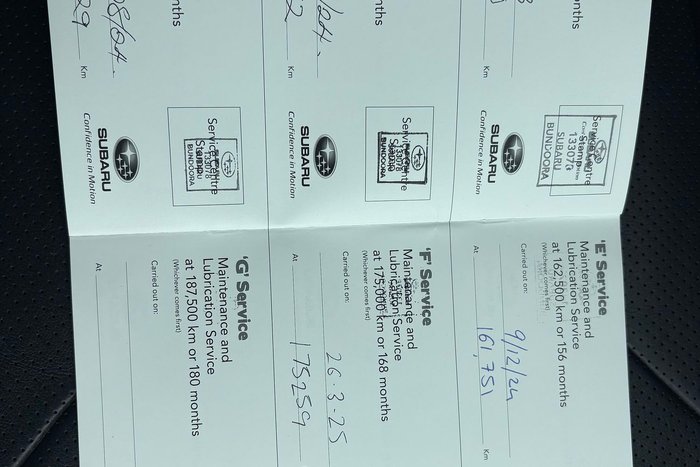 'E' Service
Maintenance and
Lubrication Service
at 162,500 km or 156 months
(Whichever comes first)
Carried out on:
9/12/24
At
161,751
Km
'F' Service
Maintenance and
Lubrication Service
at 175,000 km or 168 months
(Whichever comes first)
Carried out on:
26.3.25
At
175259
'G' Service
Maintenance and
Lubrication Service
at 187,500 km or 180 months
(Whichever comes first)
Carried out on:
At
Km
Service Centre
Stamp
133078
SUBARU
BUNDOORA
SUBARU
Confidence in Motion
nths
Km
Service Centre
133078
BUNDOORA
SUBARU
Confidence in Motion
nths
Km
Service Centre
133078
BUNDOORA
SUBARU
Confidence in Motion